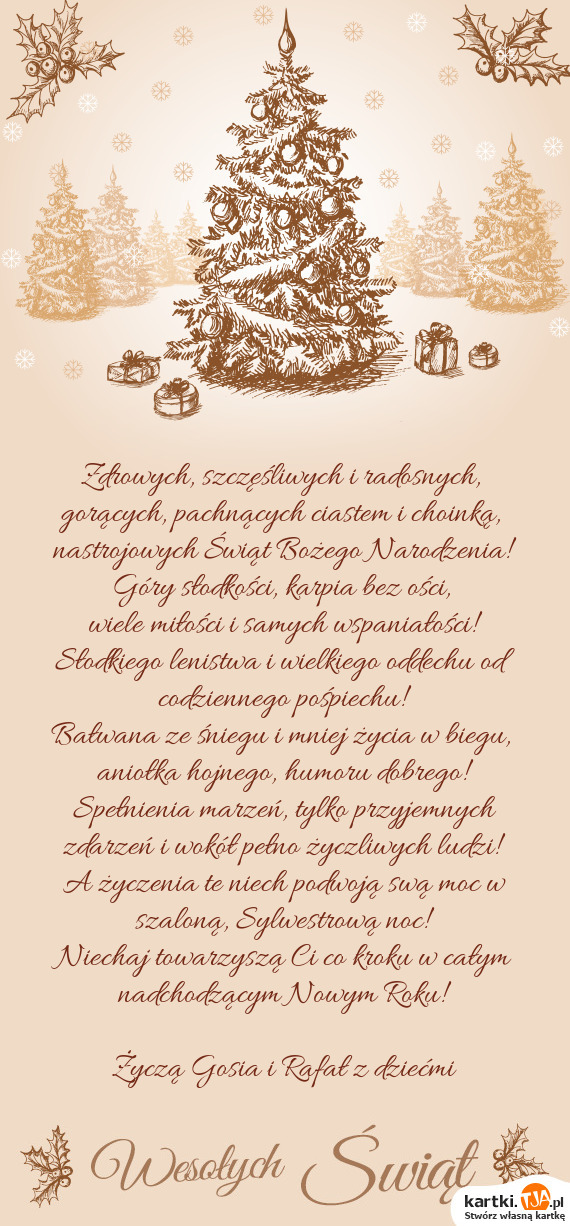 Zdrowych, szczęśliwych i radosnych,
gorących, pachnących ciastem i choinką,
nastrojowych Świąt Bożego Narodzenia!
Góry słodkości, karpia bez ości,
wiele miłości i samych wspaniałości!
Słodkiego lenistwa i wielkiego oddechu od
codziennego pośpiechu!
Bałwana ze śniegu i mniej życia w biegu,
aniołka hojnego, humoru dobrego!
Spełnienia marzeń, tylko przyjemnych
zdarzeń i wokół pełno życzliwych ludzi!
A życzenia te niech podwoją swą moc w
szaloną, Sylwestrową noc!
Niechaj towarzyszą Ci co kroku w całym
nadchodzącym Nowym Roku!
Życzą Gosia i Rafał z dziećmi
Wesołych Świąt
kartki.TJA.pl
Stwórz własną kartkę